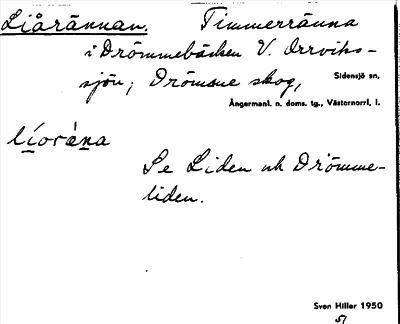 Liårännan. Timmerränna
i Drömmebäcken V. Orrviks-
sjön; Drömme skog,
Sidensjö sn,
Ångermanl. n. doms. tg., Västernorrl. l.
líoràna
Se Liden och Drömme-
liden.
Sven Hiller 1950